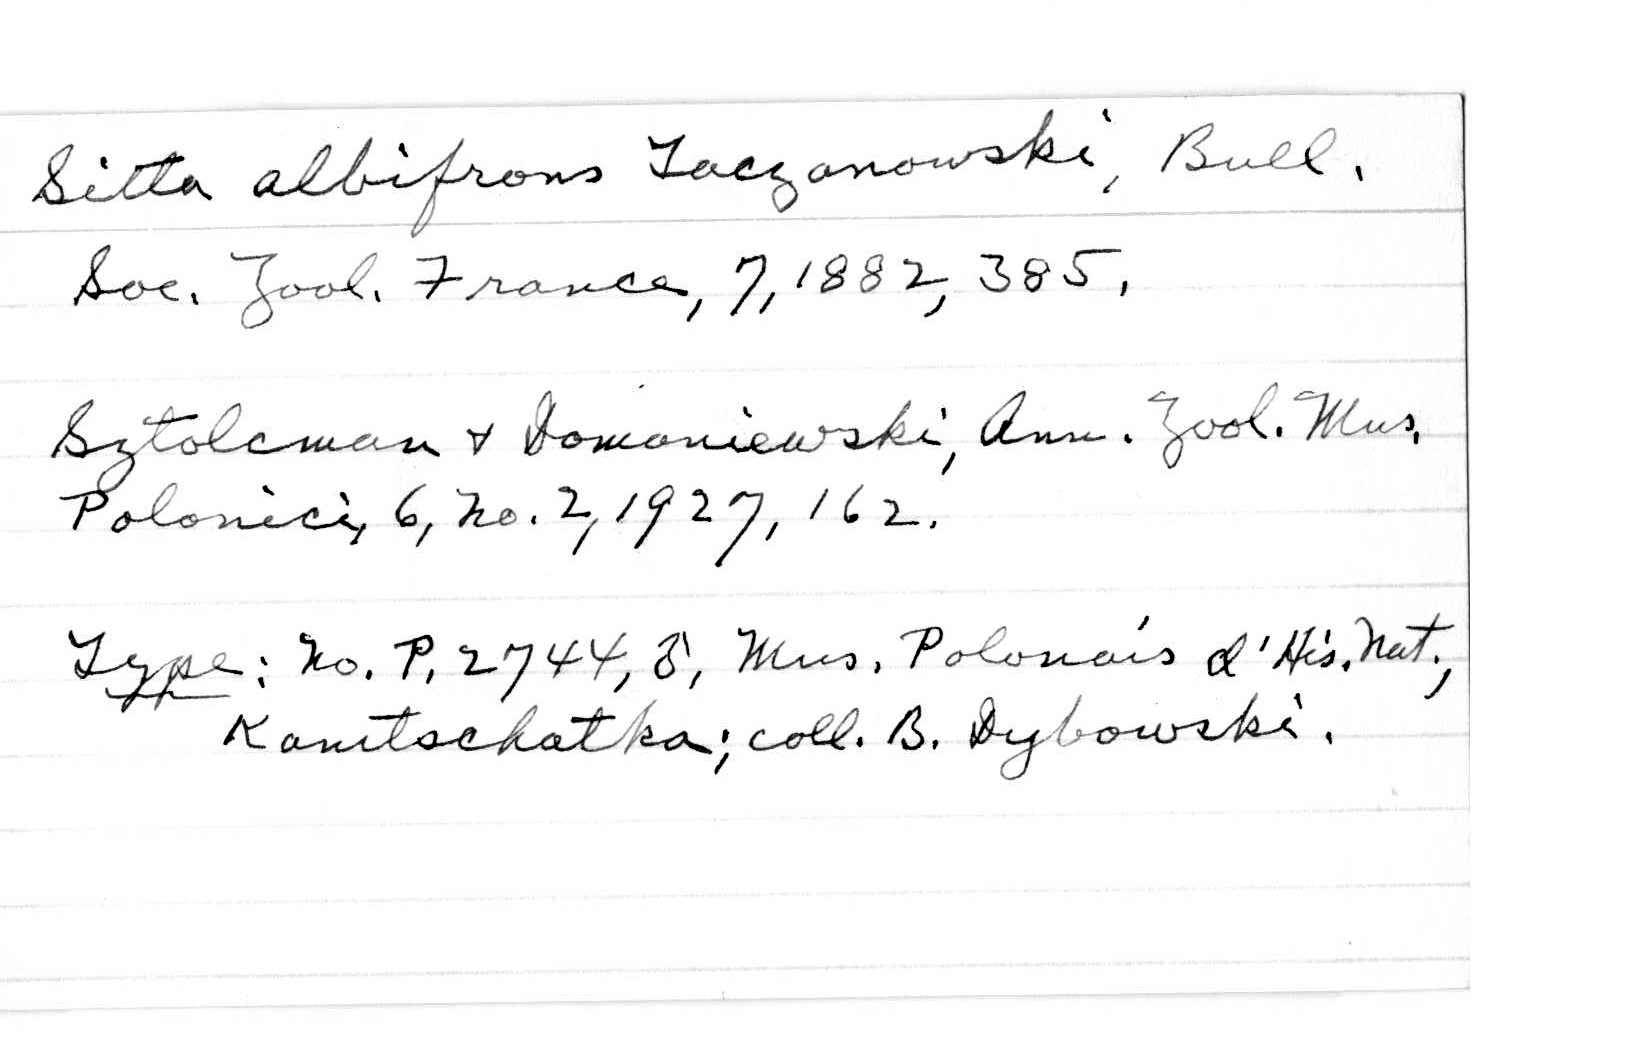 Sitta albifrons Taczanowski, Bull.
Soc. Zool. France, 7, 1882, 385.
Sztolcman & Domaniewski, Ann. Zool. Mus.
Polonici, 6, no. 2, 1927, 162.
Type: No. P. 2744, ♂, Mus. Polonais d'His. Nat.,
Kamtschatka; coll. B. Dybowski.